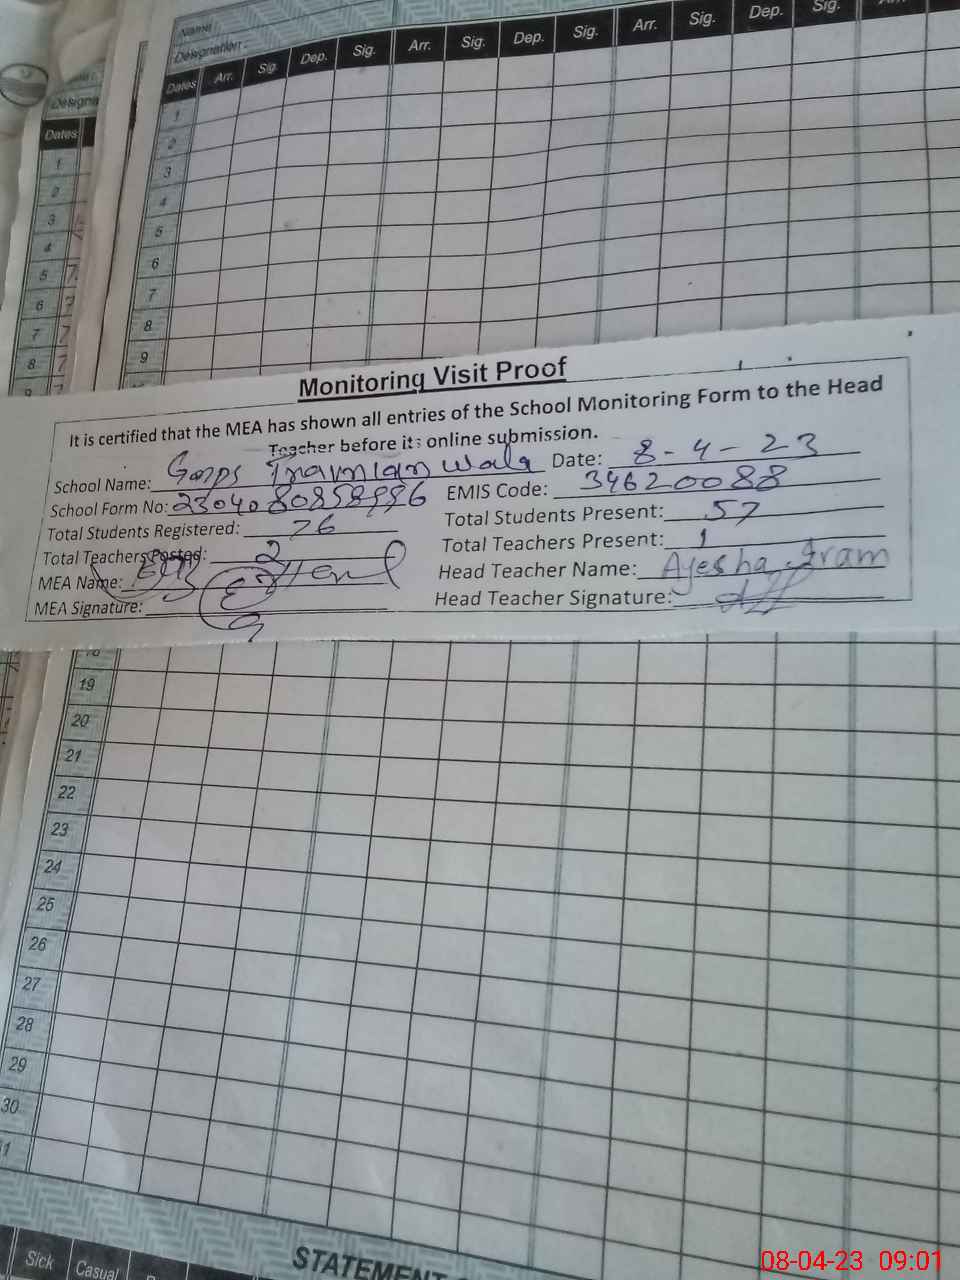 Name
Designation
Dates Arr. Sig. Dep. Sig. Arr. Sig. Dep. Sig. Arr. Sig. Dep. Sig.
1
2
3
4
5
6
7
8
9
Designa
Dates
1
2
3
4
5
6
7
8
Monitoring Visit Proof
It is certified that the MEA has shown all entries of the School Monitoring Form to the Head
Teacher before its online submission.
School Name: Date: 8-4-23
School Form No: 2304080858996 EMIS Code: 34620088
Total Students Registered: 76 Total Students Present: 57
Total Teachers Posted: 2 Total Teachers Present: 1
MEA Name: Head Teacher Name: Ayesha Iram
MEA Signature: Head Teacher Signature:
18
19
20
21
22
23
24
25
26
27
28
29
30
Sick Casual
STATEMENT
08-04-23 09:01